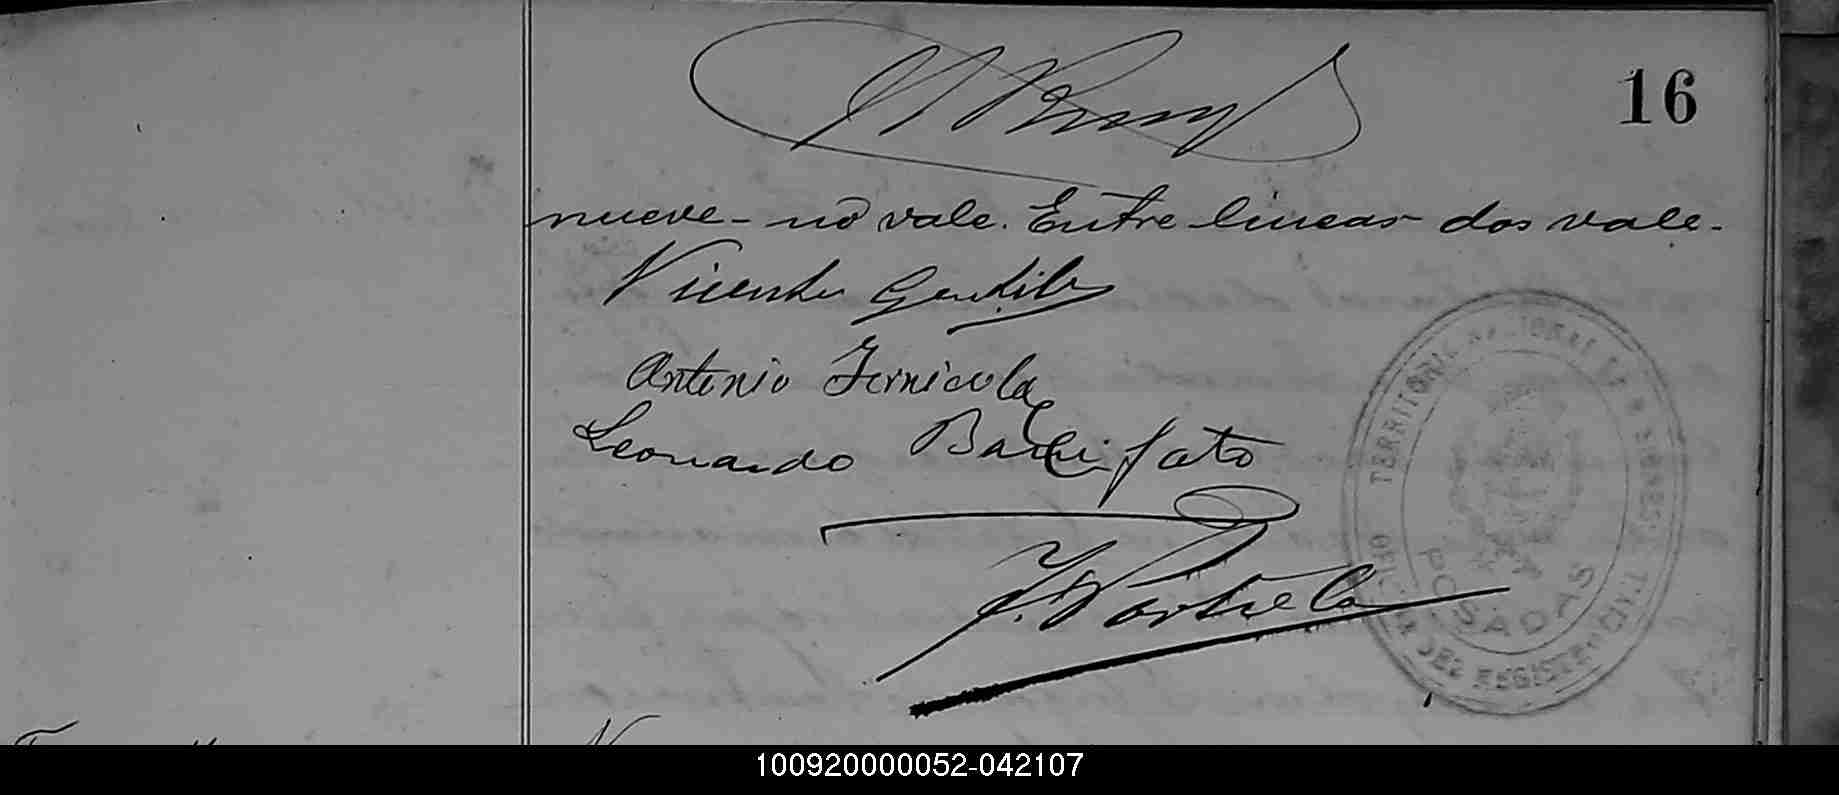 16
nueve - no vale. Entre lineas dos vale.
Vicente Gentile
Antonio Fernicola
Leonardo
J. Portela
TERRITORIO NACIONAL DE MISIONES
OFICINA DEL REGISTRO CIVIL
POSADAS
100920000052-042107